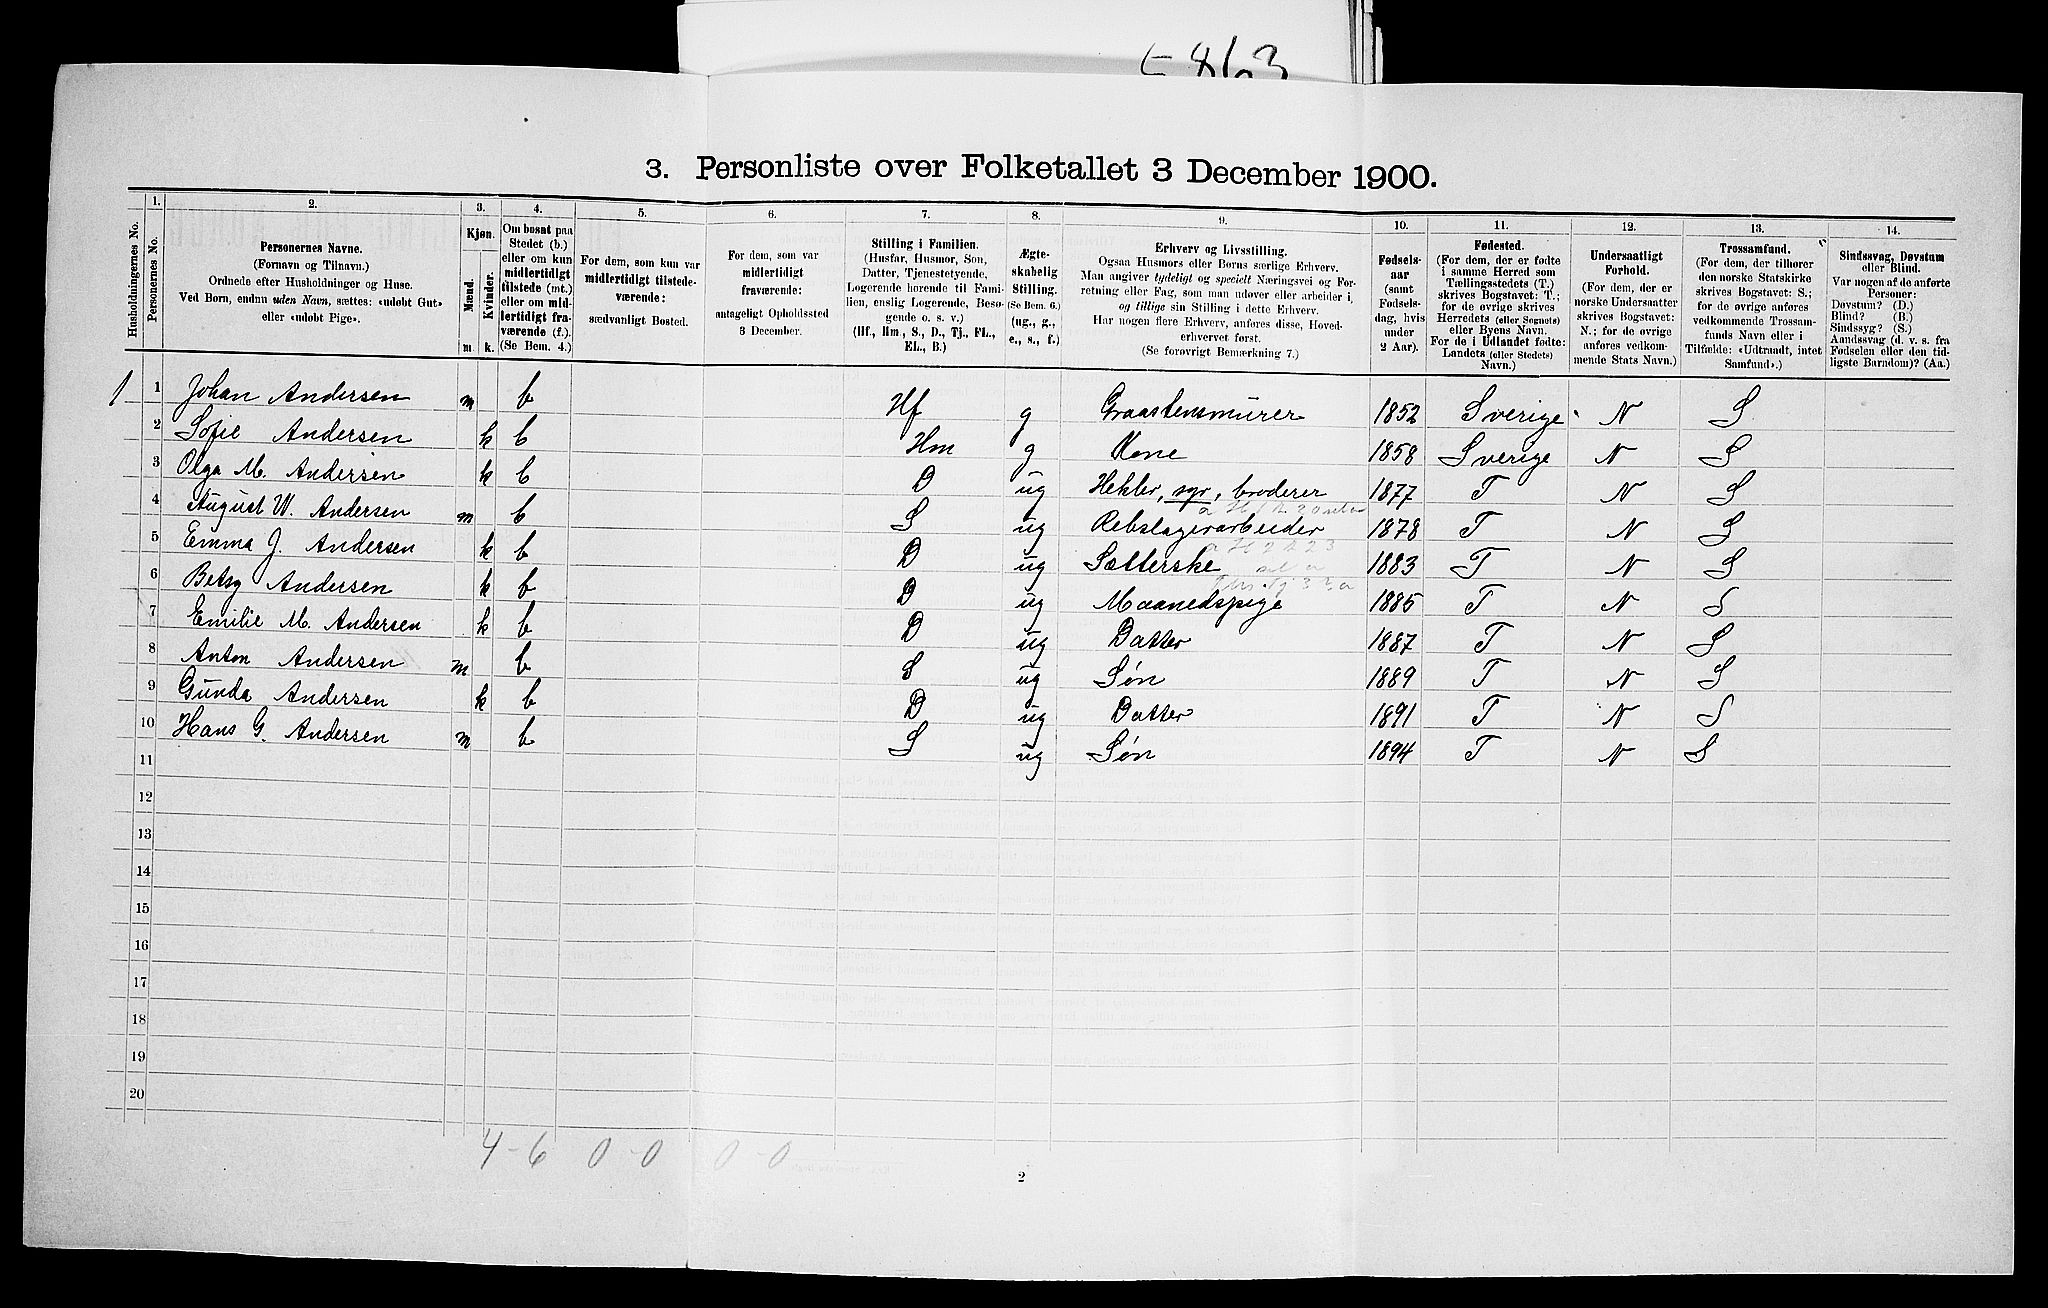 3. Personliste over Folketallet 3 December 1900.
1. 2. 3. 4. 5. 6. 7. 8. 9. 10. 11. 12. 13. 14.
Husholdningernes No.
Personernes No.
Personernes Navne.
(Fornavn og Tilnavn.)
Ordnede efter Husholdninger og Huse.
Ved Børn, endnu uden Navn, sættes: «udøbt Gut»
eller «udøbt Pige».
Kjøn.
Mænd.
Kvinder.
m. k.
Om bosat paa
Stedet (b.)
eller om kun
midlertidigt
tilstede (mt.)
eller om mid-
lertidigt fra-
værende (f.).
(Se Bem. 4.)
For dem, som kun var
midlertidigt tilstede-
værende:
sædvanligt Bosted.
For dem, som var
midlertidigt
fraværende:
antageligt Opholdssted
3 December.
Stilling i Familien.
(Husfar, Husmor, Søn,
Datter, Tjenestetyende,
Logerende hørende til Fami-
lien, enslig Logerende, Besø-
gende o. s. v.)
(Hf., Hm., S., D., Tj., FL.,
EL., B.)
Ægte-
skabelig
Stilling.
(Se Bem. 6.)
(ug., g.,
e., s., f.)
Erhverv og Livsstilling.
Ogsaa Husmors eller Børns særlige Erhverv.
Man angiver tydeligt og specielt Næringsvei og For-
retning eller Fag, som man udøver eller arbeider i,
og tillige sin Stilling i dette Erhverv.
Har nogen flere Erhverv, anføres disse, Hoved-
erhvervet først.
(Se forøvrigt Bemærkning 7.)
Fødsels-
aar
(samt
Fødsels-
dag, hvis
under
2 Aar).
Fødested.
(For dem, der er fødte
i samme Herred som
Tællingsstedets (T.)
skrives Bogstavet: T.;
for de øvrige skrives
Herredets (eller Sognets)
eller Byens Navn.
For de i Udlandet fødte:
Landets (eller Stedets)
Navn.)
Undersaatligt
Forhold.
(For dem, der er
norske Undersaatter
skrives Bogstavet:
N.; for de øvrige
anføres vedkom-
mende Stats Navn.)
Trossamfund.
(For dem, der tilhører
den norske Statskirke
skrives Bogstavet: S.;
for de øvrige anføres
vedkommende Trossam-
funds Navn eller i
Tilfælde: «Udtraadt, intet
Samfund».)
Sindssvag, Døvstum
eller Blind.
Var nogen af de anførte
Personer:
Døvstum? (D.)
Blind? (B.)
Sindssyg? (S.)
Aandssvag (d. v. s. fra
Fødselen eller den tid-
ligste Barndom)? (Aa.)
1 1 Johan Andersen m b Hf g Graastensmurer 1852 Sverige N S
2 Sofie Andersen k b Hm g Kone 1858 Sverige N S
3 Olga M. Andersen k b D ug Hekler, syr, broderer 1877 T N S
4 August W. Andersen m b S ug Rebslagerarbeider 1878 T N S
5 Emma J. Andersen k b D ug Sætterske 1883 T N S
6 Betsy Andersen k b D ug Maanedspige 1885 T N S
7 Emilie M. Andersen k b D ug Datter 1887 T N S
8 Anton Andersen m b S ug Søn 1889 T N S
9 Gunda Andersen k b D ug Datter 1891 T N S
10 Hans G. Andersen m b S ug Søn 1894 T N S
11
12
13
14
15
16
17
18
19
20
4-6 0-0 0-0
2